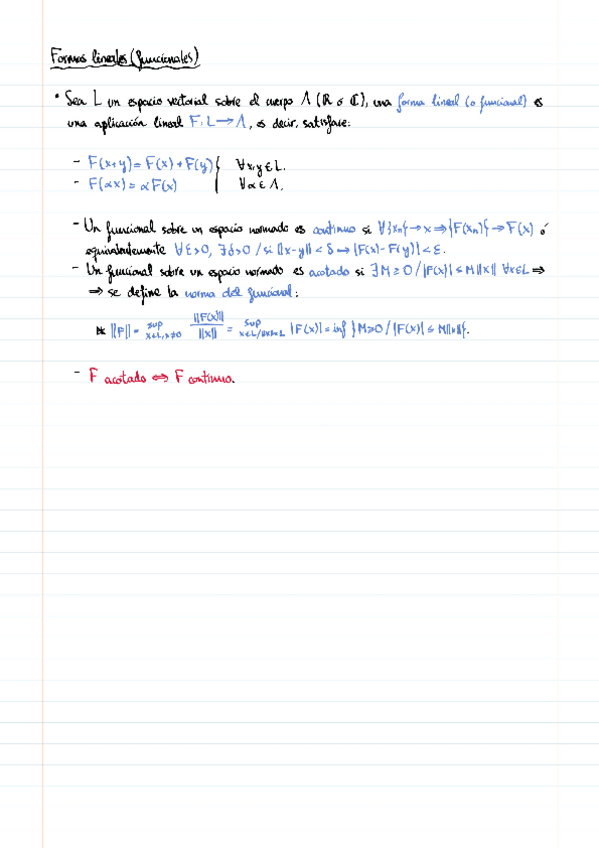 Formas lineales (funcionales)
• Sea L un espacio vectorial sobre el cuerpo Λ (ℝ ó ℂ), una forma lineal (o funcional) es
una aplicación lineal F: L → Λ, es decir, satisface:
- F(x+y) = F(x) + F(y) { ∀x,y ∈ L.
- F(αx) = αF(x) ∀α ∈ Λ.
- Un funcional sobre un espacio normado es continuo si ∀{xn} → x ⇒ {F(xn)} → F(x) ó
equivalentemente ∀ε>0, ∃δ>0 / si ||x-y|| < δ ⇒ |F(x)-F(y)| < ε.
- Un funcional sobre un espacio normado es acotado si ∃M ≥ 0 / |F(x)| ≤ M||x|| ∀x∈L ⇒
⇒ se define la norma del funcional:
||F|| = sup x∈L, x≠0 ||F(x)|| / ||x|| = sup |F(x)| = inf {M ≥ 0 / |F(x)| ≤ M||x||}.
- F acotado ⇔ F continuo.